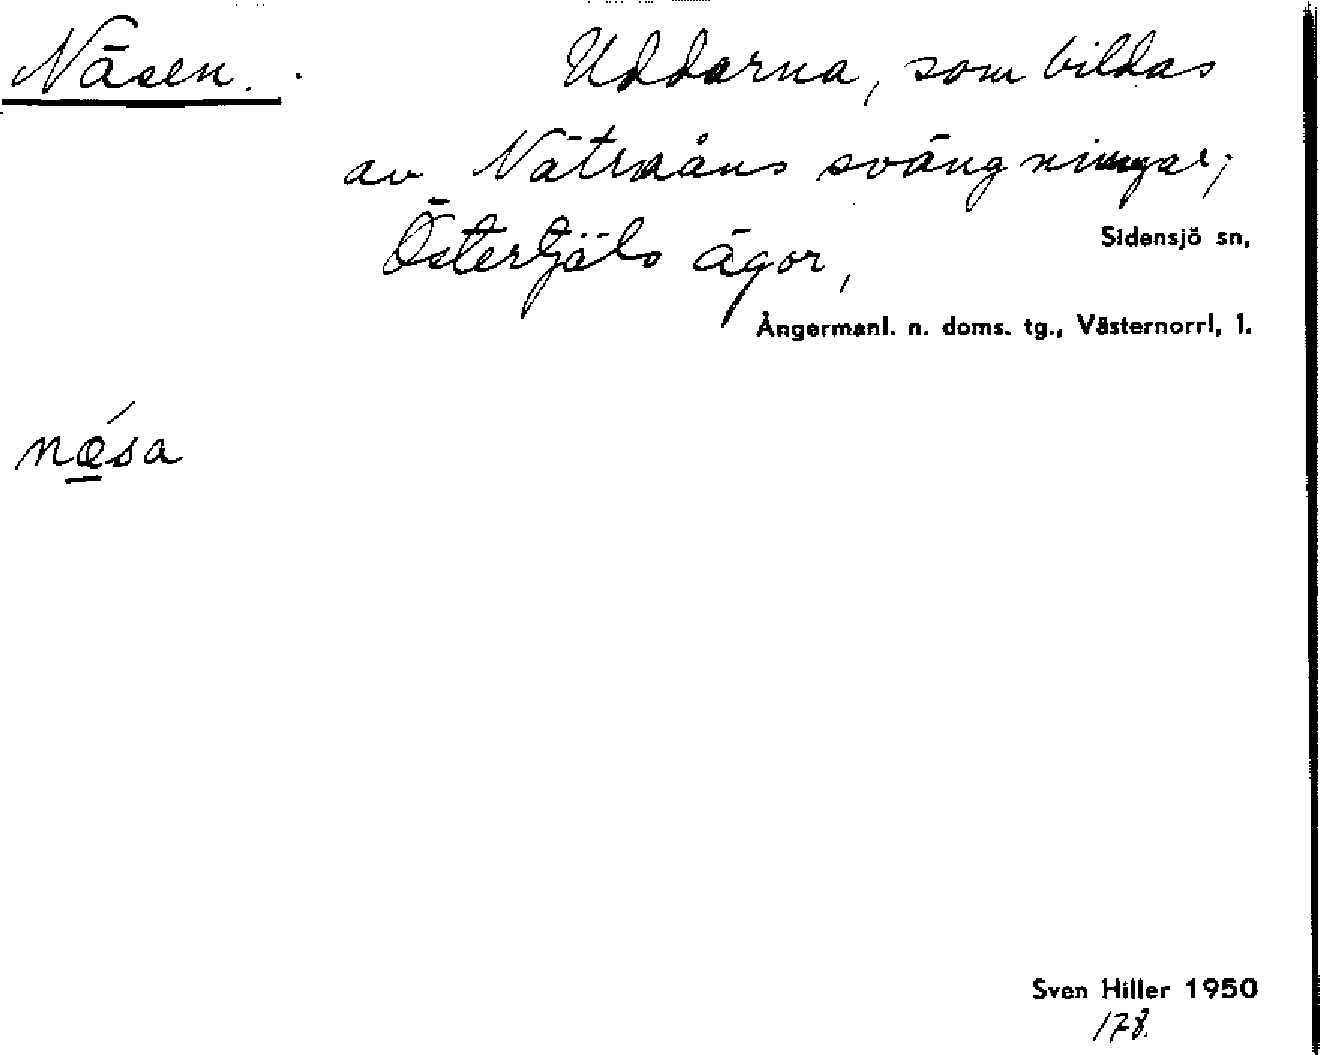 Näsen. Uddarna, som bildas
av Nätraåns svängningar;
Östertjäls ägor,
Sidensjö sn,
Ångermanl. n. doms. tg., Västernorrl, l.
næsa
Sven Hiller 1950
178.